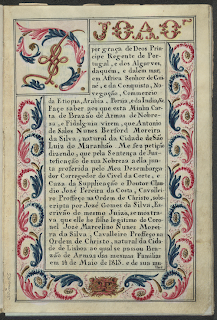 D. JOAO
por graça de Deos Prin
cipe Regente de Por
tugal, e dos Algarves,
daquem, e dalem mar,
em Africa Senhor de Gui
né, e da Conquista, Na
vegação, Commercio
da Etiopia, Arabia, Persia, e da India, &
Faço saber aos que esta Minha Car
ta de Brazão de Armas de Nobre
za, e Fidalguia virem, que Antonio
de Salles Nunes Berford Moreira
da Silva, natural da Cidade de São
Luiz do Maranhão Me fez petição
dizendo, que pela Sentença de Jus
tificação de sua Nobreza a ella jun
ta proferida pelo Meu Dezembarga
dor Corregedor do Civel da Corte, e
Caza da Supplicação o Doutor Clau
dio José Pereira da Costa, Cavallei
ro Professo na Ordem de Christo, sobs
cripta por José Gomes da Silva, Es
crivão do mesmo Juizo, se mostra
que elle he filho legitimo de Coro
nel José Marcelino Nunes Morei
ra da Silva, Cavalleiro Professo na
Ordem de Christo, natural da Cida
de de Lisboa ao qual se passou Bra
zão de Armas das mesmas Familias
em 14 de Maio de 1813, e de sua mu